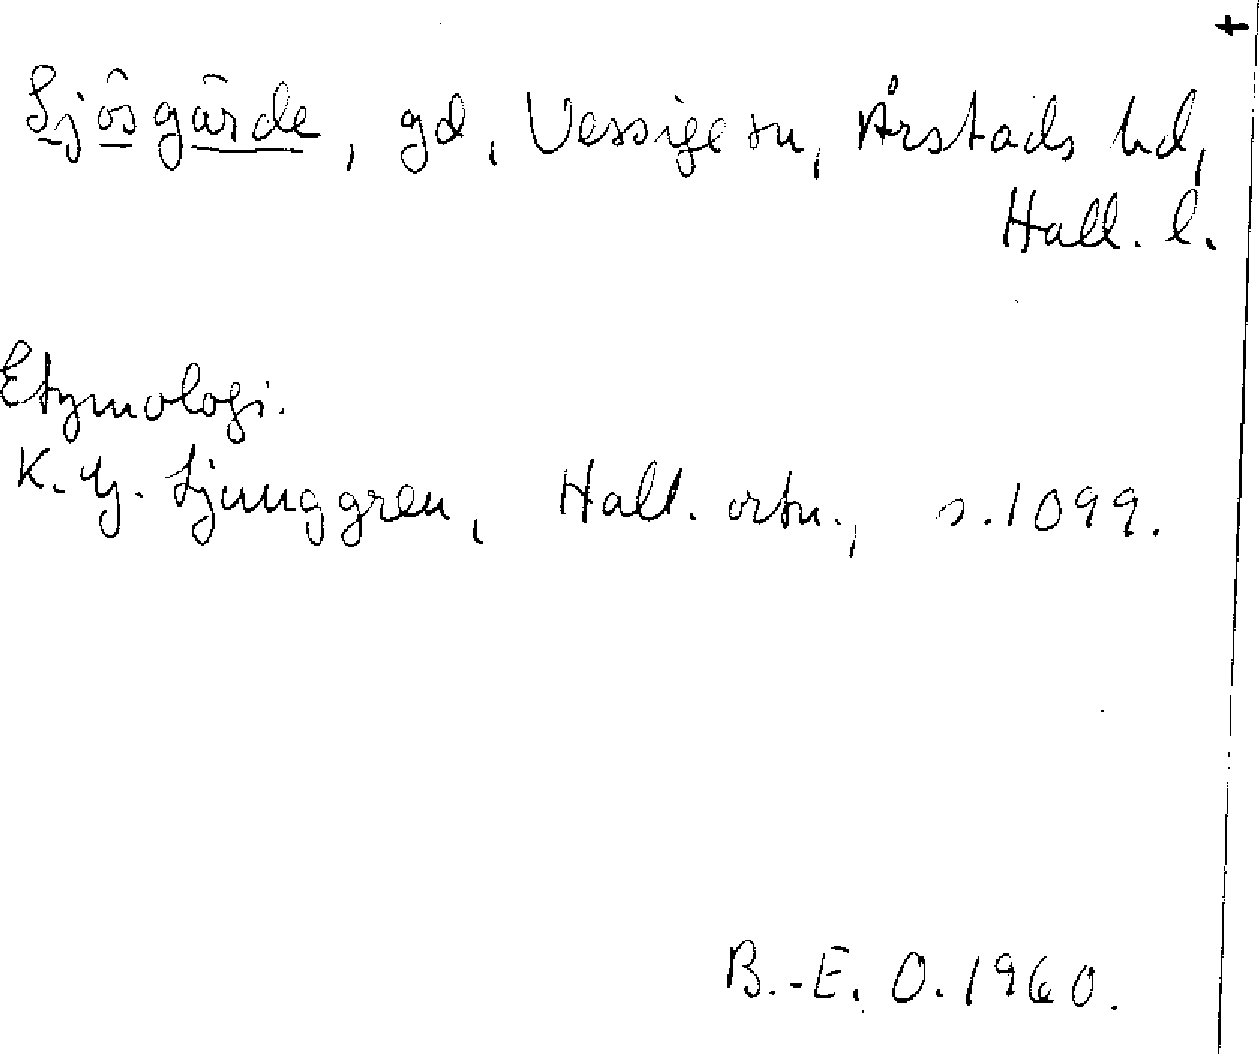 Sjösgärde, gd, Vessige sn, Årstads hd,
Hall. l.
Etymologi.
K. G. Ljunggren, Hall. ortn., s. 1099.
B.-E. O. 1960.